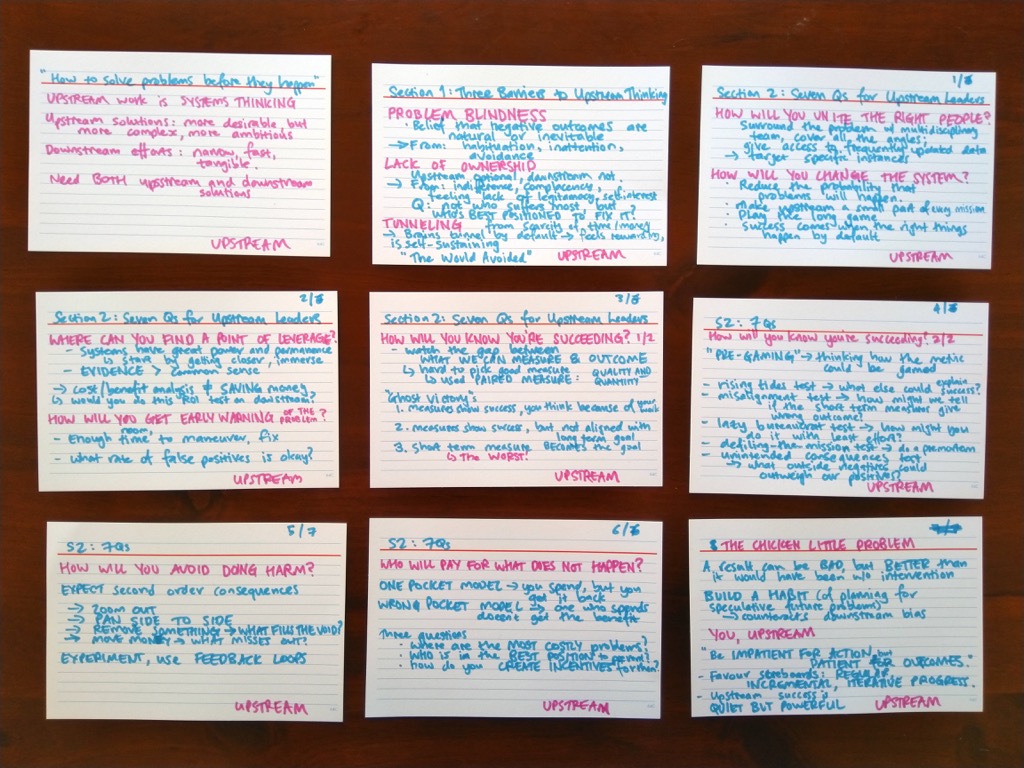 "How to solve problems before they happen"
UPSTREAM WORK is SYSTEMS THINKING
Upstream solutions: more desirable, but
more complex, more ambitious
Downstream efforts: narrow, fast,
tangible.
Need BOTH upstream and downstream
solutions
UPSTREAM
Section 1: Three Barriers to Upstream Thinking
PROBLEM BLINDNESS
· Belief that negative outcomes are
natural or inevitable
→ From: habituation, inattention,
avoidance
LACK OF OWNERSHIP
Upstream optional, downstream not.
→ From: indifference, complacency,
feeling lack of legitamacy, self-interest
Q: not who suffers most, but
WHO'S BEST POSITIONED TO FIX IT?
TUNNELING from scarcity of time/money
→ Brains tunnel by default → feels rewarding,
is self-sustaining
"The World Avoided"
UPSTREAM
1/
Section 2: Seven Qs for Upstream Leaders
HOW WILL YOU UNITE THE RIGHT PEOPLE?
Surround the problem w multidisciplinary
team, cover all the angles,
give access to frequently updated data
→ target specific instances
HOW WILL YOU CHANGE THE SYSTEM?
· Reduce the probability that
problems will happen.
· Make upstream a small part of every mission
· Play the long game
· Success comes when the right things
happen by default
UPSTREAM
2/
Section 2: Seven Qs for Upstream Leaders
WHERE CAN YOU FIND A POINT OF LEVERAGE?
- Systems have great power and permanence
↳ start by getting closer, immerse
- EVIDENCE > common sense
→ cost/benefit analysis ≠ SAVING money,
↳ would you do this ROI test on downstream?
HOW WILL YOU GET EARLY WARNING OF THE PROBLEM?
- Enough time room, to maneuver, fix
- What rate of false positives is okay?
UPSTREAM
3/
Section 2: Seven Qs for Upstream Leaders
HOW WILL YOU KNOW YOU'RE SUCCEEDING? 1/2
- watch the gap between
WHAT WE CAN MEASURE & OUTCOME
↳ hard to pick good measure
↳ used PAIRED MEASURE: QUALITY AND QUANTITY
"Ghost Victory"s
1. measures show success, you think because of your work
2. measures show success, but not aligned with
long term goal
3. Short term measure BECOMES the goal
↳ The WORST!
UPSTREAM
4/
S2: 7Qs
How will you know you're succeeding? 2/2
"PRE-GAMING" → thinking how the metric
could be gamed
- rising tides test → what else could explain success?
- misalignment test → how might we tell
if the short term measures give
wrong outcome?
- lazy bureaucrat test → how might you
do it with least effort?
- defiling-the-mission test → do a premortem
- Unintended consequences test
→ what outside negatives could
outweigh our positives?
UPSTREAM
5/7
S2: 7Qs
HOW WILL YOU AVOID DOING HARM?
EXPECT second order consequences
→ ZOOM OUT
→ PAN SIDE TO SIDE
→ REMOVE SOMETHING → WHAT FILLS THE VOID?
→ MOVE MONEY → WHAT MISSES OUT?
EXPERIMENT, USE FEEDBACK LOOPS
UPSTREAM
6/
S2: 7Qs
WHO WILL PAY FOR WHAT DOES NOT HAPPEN?
ONE POCKET MODEL → you spend, but you
get it back
WRONG POCKET MODEL → one who spends
doesn't get the benefit
Three questions
· where are the MOST COSTLY problems?
· WHO is in the BEST POSITION to prevent?
· how do you CREATE INCENTIVES for them?
UPSTREAM
THE CHICKEN LITTLE PROBLEM
A result can be BAD, but BETTER than
it would have been w/o intervention
BUILD A HABIT (of planning for
speculative future problems)
→ counteracts downstream bias
YOU, UPSTREAM
"Be IMPATIENT FOR ACTION, but
PATIENT FOR OUTCOMES."
- Favour scoreboards: REGULAR,
INCREMENTAL, ITERATIVE PROGRESS.
- Upstream success is
QUIET BUT POWERFUL
UPSTREAM